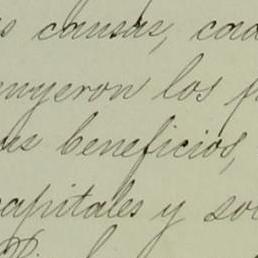 s causas, cad
nuyeron los p
beneficios,
capitales y so